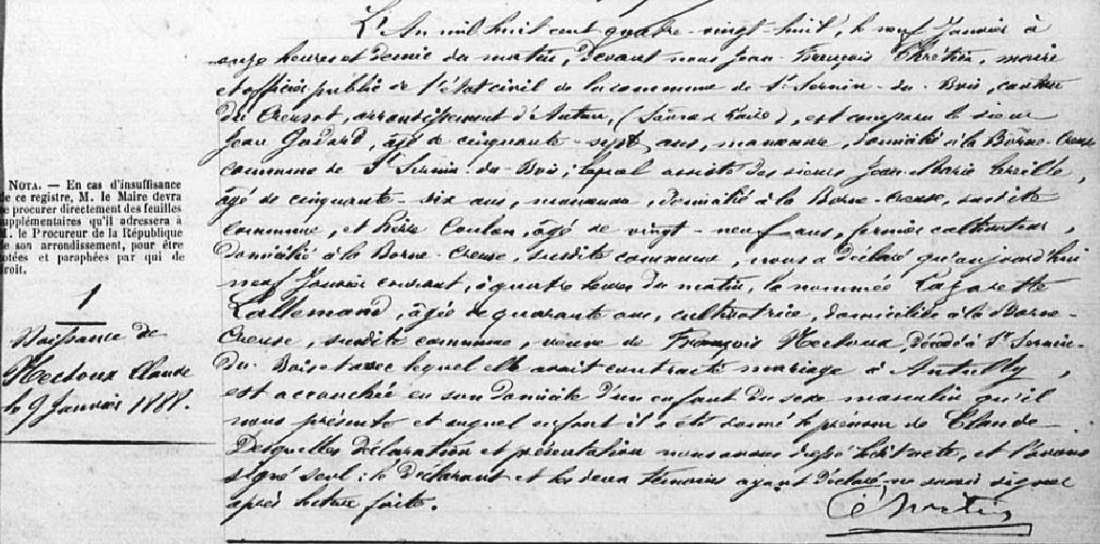 L'An mil huit cent quatre-vingt-huit, le neuf Janvier à
onze heures et demie du matin, devant nous Jean-François Chrétien, maire
et officier public de l'état civil de la commune de St Sernin-du-Bois, canton
du Creusot, arrondissement d'Autun, (Saône & Loire), est comparu le sieur
Jean Godard, âgé de cinquante-sept ans, manœuvre, domicilié à la Borne-Creuse
commune de St Sernin-du-Bois, lequel assisté des sieurs Jean-Marie
âgé de cinquante-six ans, manœuvre, domicilié à la Borne-Creuse, susdite
commune, et Pierre Coulon, âgé de vingt-neuf ans, fermier cultivateur,
domicilié à la Borne-Creuse, susdite commune, nous a déclaré qu'aujourd'hui
neuf Janvier courant, à quatre heures du matin, la nommée Lazarette
Lallemand, âgée de quarante ans, cultivatrice, domiciliée à la Borne-
Creuse, susdite commune, veuve de François Nectoux, décédé à St Sernin-
du-Bois et avec lequel elle avait contracté mariage à Antully,
est accouchée en son domicile d'un enfant du sexe masculin qu'il
nous présente et auquel enfant il a été donné le prénom de Claude
Desquelles déclaration et présentation nous avons dressé le acte, et l'avons
signé seul; le déclarant et les deux témoins ayant déclaré ne savoir signer
après lecture faite.
Chrétien
NOTA. — En cas d'insuffisance
de ce registre, M. le Maire devra
se procurer directement des feuilles
supplémentaires qu'il adressera à
M. le Procureur de la République
de son arrondissement, pour être
cotées et paraphées par qui de
droit.
1
Naissance de
Nectoux Claude
le 9 Janvier 1888.